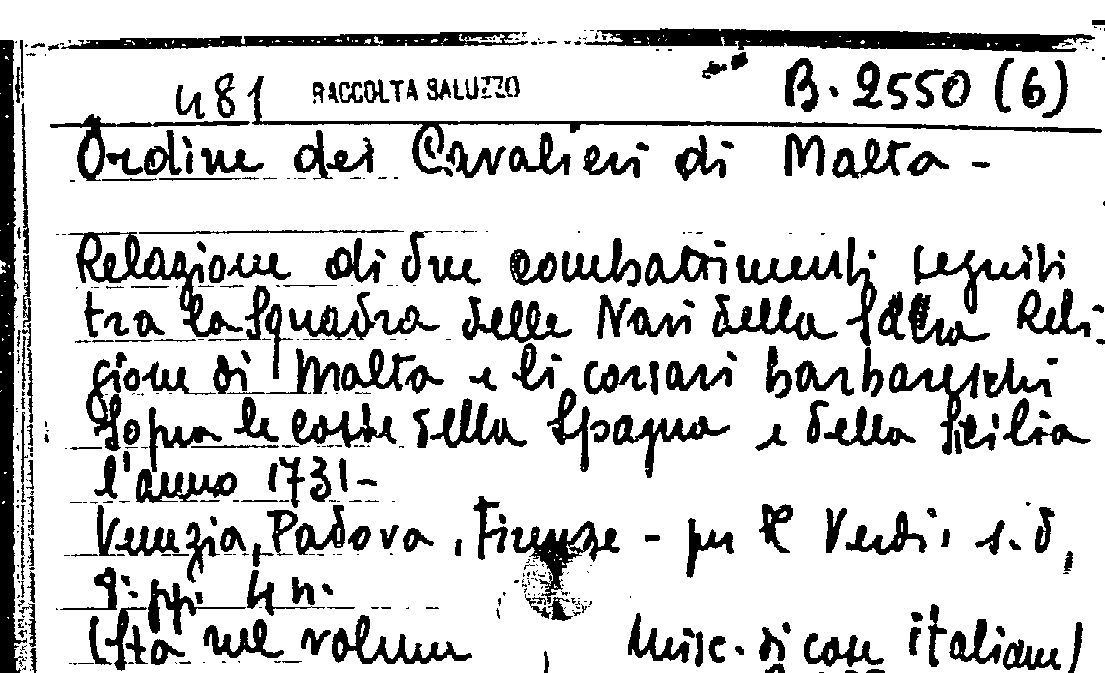 481 RACCOLTA SALUZZO B. 2550 (6)
Ordine dei Cavalieri di Malta -
Relazione di due combattimenti seguiti
tra la Squadra delle Navi della Sacra Reli-
gione di Malta e li corsari barbareschi
Sopra le coste della Spagna e della Sicilia
l'anno 1731-
Venezia, Padova, Firenze - per Verdi, s.d,
8° pp. 4 n.
(sta nel volume Misc. di cose italiane)